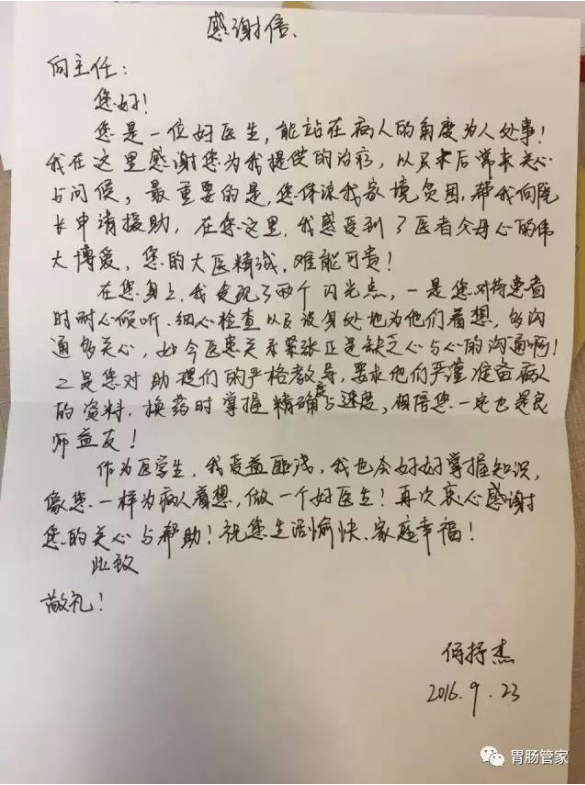 感谢信.
向主任:
您好!
您是一位好医生,能站在病人的角度为人处事!
我在这里感谢您为我提供的治疗,以及术后常来关心
与问候,最重要的是,您体谅我家境贫困,帮我向院
长申请援助,在您这里,我感受到了医者父母心的伟
大博爱,您的大医精诚,难能可贵!
在您身上,我发现了两个闪光点,一是您对待患者
时耐心倾听、细心检查以及设身处地为他们着想,多沟
通多关心,如今医患关系紧张正是缺乏心与心的沟通啊!
二是您对助理们的严格教导,要求他们严谨准备病人
的资料,换药时掌握精确度与速度,相信您一定也是良
师益友!
作为医学生,我受益匪浅,我也会好好掌握知识,
像您一样为病人着想,做一个好医生!再次衷心感谢
您的关心与帮助!祝您生活愉快、家庭幸福!
此致
敬礼!
何抒杰
2016.9.23
胃肠管家